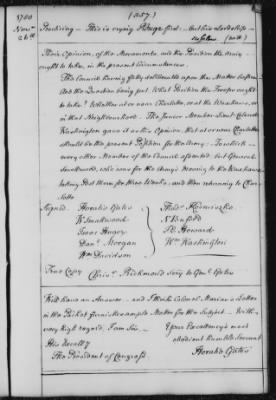 1780
Novr
26th
(357)
Their Opinion, of the Movements, and the Position the Army
ought to take, in the present Circumstances.
The Council having fully deliberated upon the Matter
And the Question being put. What Position the Troops ought
to take? Whether at or near Charlotte, or at the Waxhaws, or
in that Neighbourhood. The Junior Member Lieut Colonel
Washington gave it as his Opinion that at or near Charlotte
should be the present Position for the Army. To which
every other Member of the Council assented but General
Smallwood, who was for the Army moving to the Waxhaws
taking Post there for three Weeks, and then returning to Char-
lotte
Signed Horatio Gates Thads. Kosciuszko
W Smallwood A Buford
Isaac Huger J E Howard
Danl. Morgan Wm Washington
Wm Davidson
True Copy Chrisr. Richmond Secy to Genl. Gates
Will have an Answer and I think Colonel Marion's Letter
in the Packet furnishes ample Matter for the Subject With
very high regard, I am Sir
Your Excellency's most
His Excelly obedient humble Servant
The President of Congress Horatio Gates